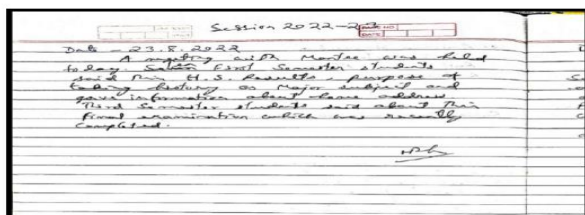 Session 2022-23
Date - 23.8.2022
A meeting with Mentee was held
today. Seven First Semester students
said their H.S. Results, purpose of
taking history as Major subject and
gave information about home address
Third Semester students said about their
Final examination which was recently
Completed.